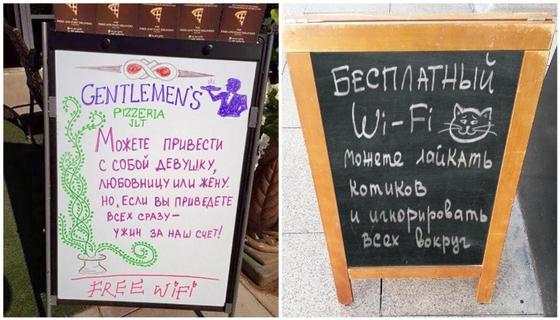 GENTLEMEN'S
PIZZERIA
JLT
МОЖЕТЕ ПРИВЕСТИ
С СОБОЙ ДЕВУШКУ,
ЛЮБОВНИЦУ ИЛИ ЖЕНУ.
НО, ЕСЛИ ВЫ ПРИВЕДЕТЕ
ВСЕХ СРАЗУ —
УЖИН ЗА НАШ СЧЕТ!
FREE WiFi
БЕСПЛАТНЫЙ
Wi-Fi
можете лайкать
котиков
и игнорировать
всех вокруг